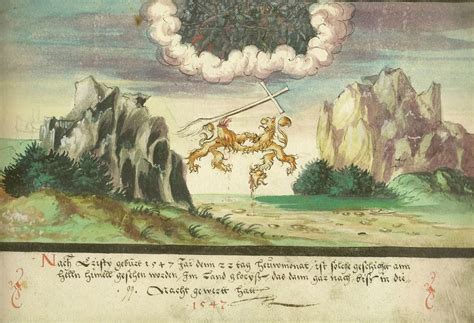 Nach Cristy gebürt 1547 Jar denn 22 tag heuwmonat, ist solche geschicht am
hellen himmel gesehen worden, Im Land das dann gar nach biss in die
Nacht gewert hatt
1547